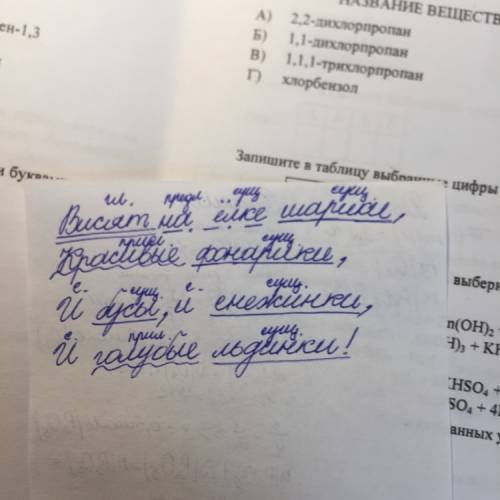 НАЗВАНИЕ ВЕЩЕСТВ
А) 2,2-дихлорпропан
Б) 1,1-дихлорпропан
В) 1,1,1-трихлорпропан
Г) хлорбензол
ен-1,3
Запишите в таблицу выбранные цифры
и буквам
гл. предл сущ сущ.
Висят на ёлке шарики,
прил сущ.
Красивые фонарики,
с сущ. с сущ.
И бусы, и снежинки,
с прил. сущ.
И голубые льдинки!
выбери
n(OH)₂
H)₃ + KH
KHSO₄ +
SO₄ + 4
анных у